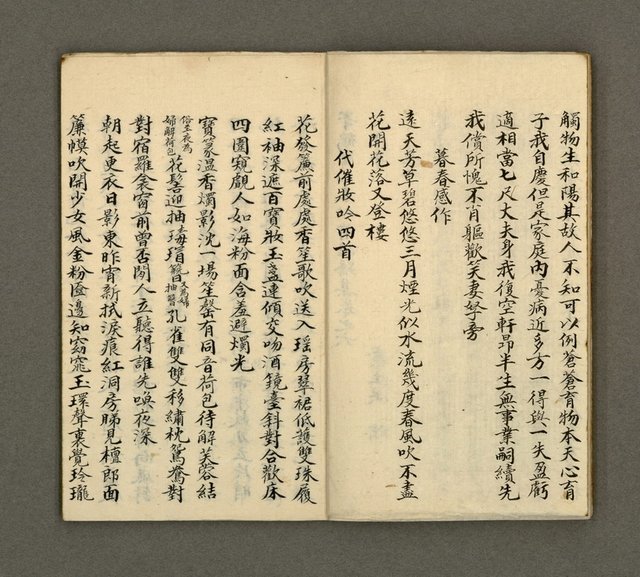 觸物生和陽其故人不知可以例蒼蒼育物本天心育
子我自慶但是家庭內憂病近多方一得與一失盈虧
適相當七尺大夫身我復空軒昂半生無事業嗣續先
我償所愧不肖軀歡笑妻孥旁
暮春感作
遠天芳草碧悠悠三月煙光似水流幾度春風吹不盡
花開花落又登樓
代催妝吟四首
花發簾前處處香笙歌吹送入瑤房翠裙低護雙珠履
紅袖深遮百寶妝玉盞連傾交吻酒鏡臺斜對合歡床
四圍窺觀人如海粉面含羞避燭光
寶篆溫香燭影沈一場笙磬有同音荷包待解芙蓉結
俗至夜為婦解荷包花髻迎抽瑇瑁簪又為婦抽簪孔雀雙雙移繡枕鴛鴦對
對宿羅衾窗前曾否閒人立聽得誰先喚夜深
朝起更衣日影東昨宵新拭淚痕紅洞房睇見檀郎面
簾幙吹開少女風金粉奩邊知窈窕玉環聲裏覺玲瓏